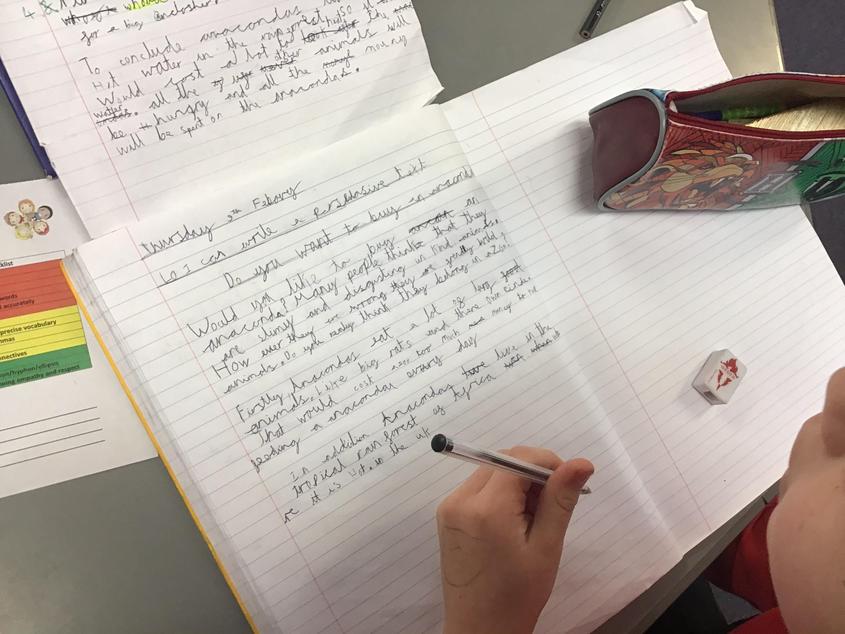 for a big enclosher
To conclude anacondas
Hot water in the
Would cost a lot for
water. all the other animals will
be hungry and all the mouny
will be spent on the anacondas.
Thursday 9th Febary
Lo I can write a Persuasive text
Do you want to buy an anacond
Would you like to buy an
anaconda? Many people think that they
are slimy and disgusting in kind animals.
How ever they are wrong they are really wild
animals. Do you really think they belong in a Zoo.
Firstly Anacondas eat a lot of big
animals. Like big rats and there
That would cost too much money to be
feeding a anacondas evrey day
In addition Anacondas live in the
tropical rain forest of Africa
re it is Hot. In the uk
klist
words
accurately
precise vocabulary
mmas
nnectives
on/hyphen/ellipsis
wing empathy and respect